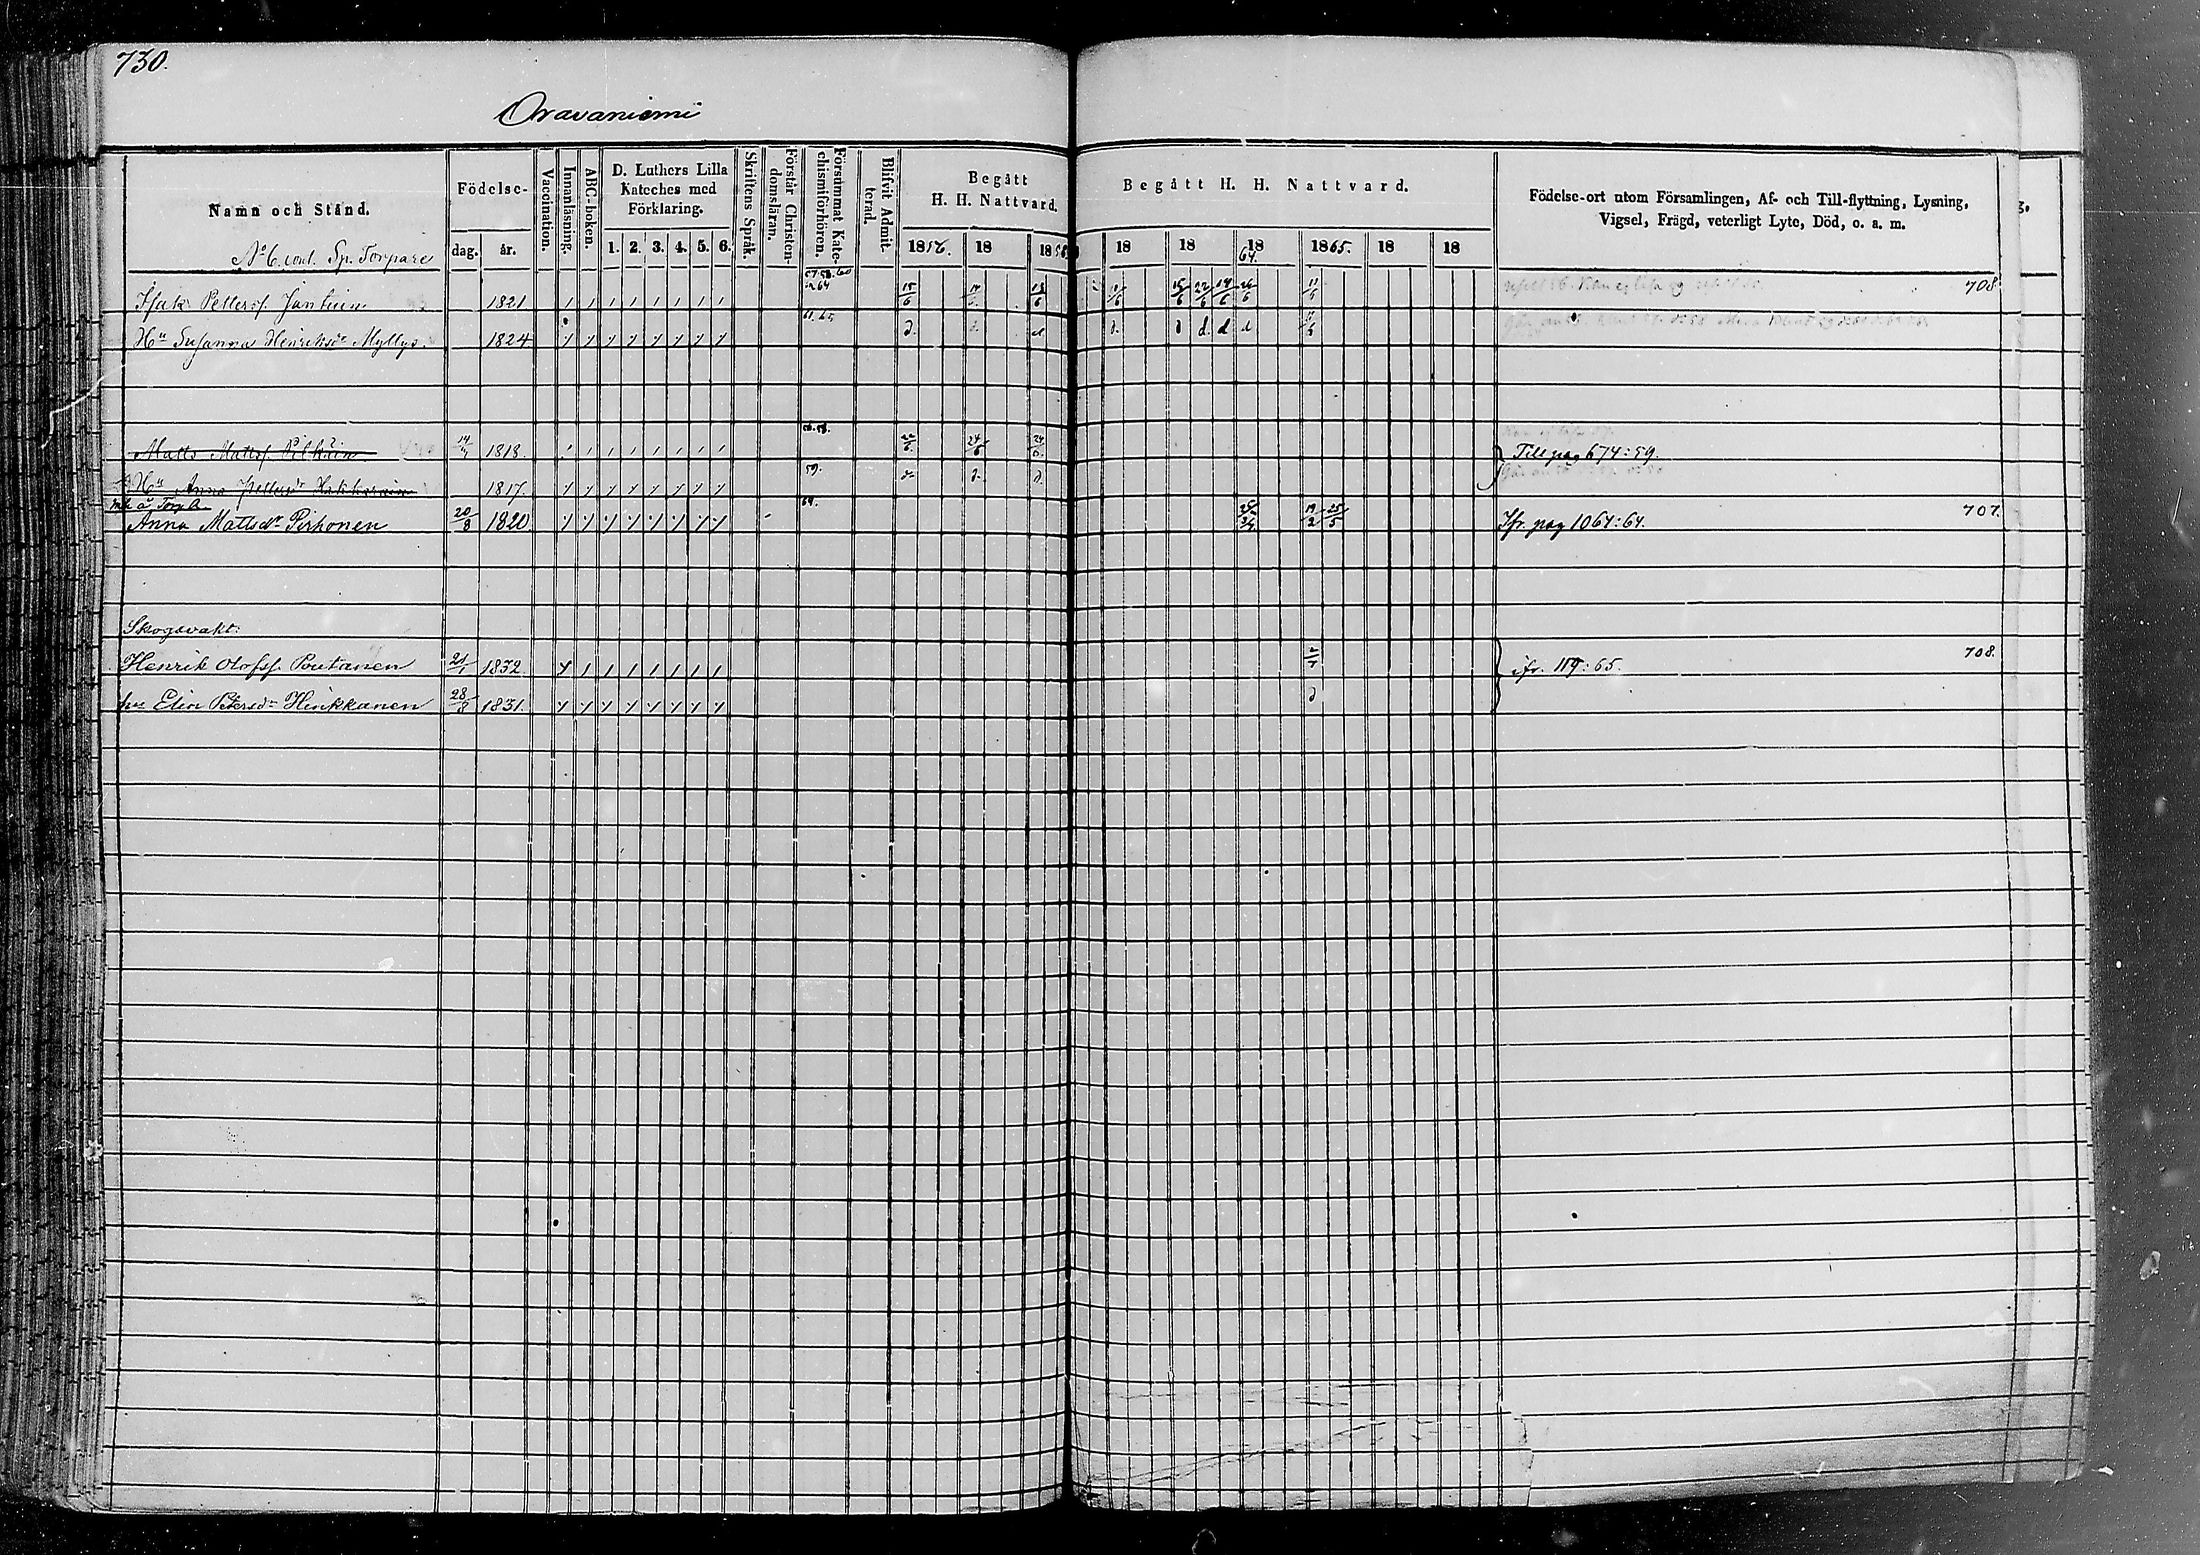 730.
Oravaniemi
Namn och Stånd.
Födelse-
dag. år.
Vaccination.
Innanläsning.
ABC-boken.
D. Luthers Lilla
Kateches med
Förklaring.
1. 2. 3. 4. 5. 6.
Skriftens Språk.
Förstår Christen-
domsläran.
Försummat Kate-
chismiförhören.
Blifvit Admit-
terad.
Begått
H. H. Nattvard.
1856. 18 1858
Begått H. H. Nattvard.
18 18 18 64. 1865. 18 18
Födelse-ort utom Församlingen, Af- och Till-flyttning, Lysning,
Vigsel, Frägd, veterligt Lyte, Död, o. a. m.
No 6. cont. Sp. Torpare
57. 58. 60
Isak Petterss. 1821 64 15/6 18/6 11/5 708
61. 65
Hu Susanna Henriksdr Myllys. 1824 d. d d d. d d. d d
56. 58.
Matts Mattss. 14/7 1818. 22/6 24/6 24/6 Till pag 674:59.
59.
Hu Anna Pettersdr 1817. d d. d.
64.
Anna Mattsdr Pirhonen 20/8 1820. 19/2 25/5 Jfr. pag 1064:64. 707.
Skogsvakt:
Henrik Olofss. Poutanen 21/1 1832. jfr. 119:65. 708.
hu Elin Petersdr Hinkkanen 28/8 1831. d